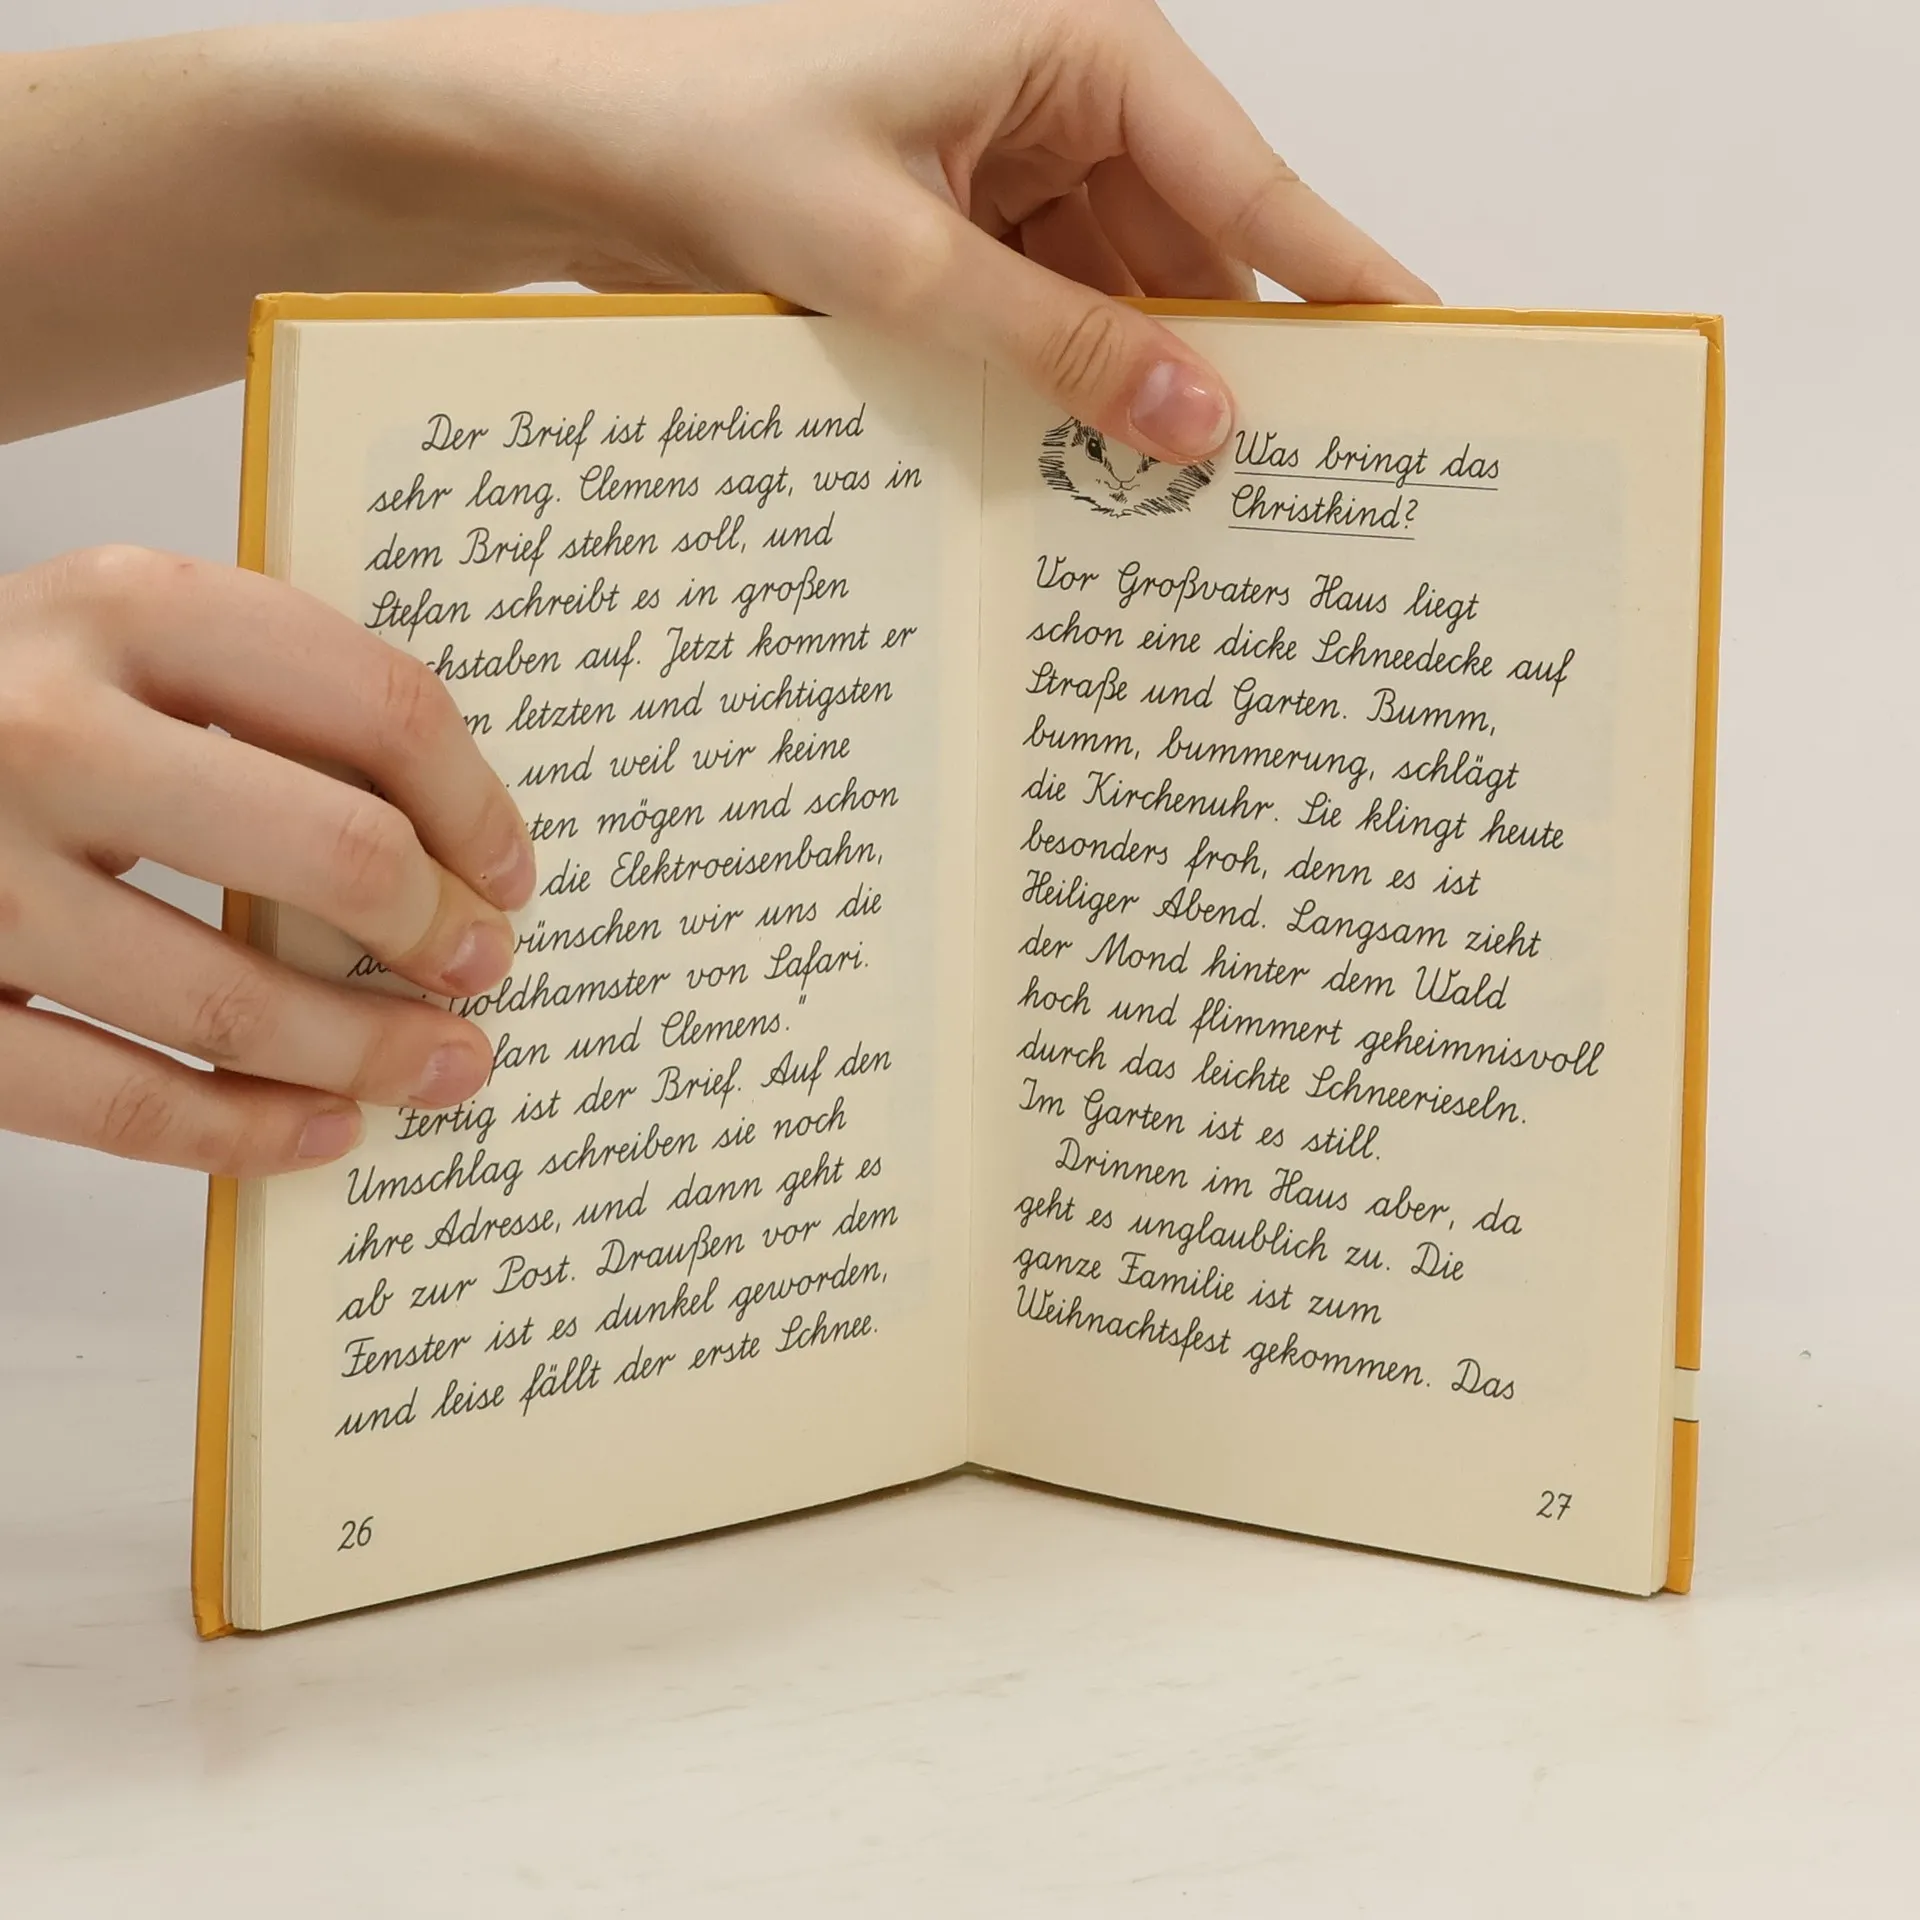 Der Brief ist feierlich und
sehr lang. Clemens sagt, was in
dem Brief stehen soll, und
Stefan schreibt es in großen
chstaben auf. Jetzt kommt er
m letzten und wichtigsten
und weil wir keine
ten mögen und schon
die Elektroeisenbahn,
wünschen wir uns die
Goldhamster von Safari.
fan und Clemens."
Fertig ist der Brief. Auf den
Umschlag schreiben sie noch
ihre Adresse, und dann geht es
ab zur Post. Draußen vor dem
Fenster ist es dunkel geworden,
und leise fällt der erste Schnee.
26
Was bringt das
Christkind?
Vor Großvaters Haus liegt
schon eine dicke Schneedecke auf
Straße und Garten. Bumm,
bumm, bummerung, schlägt
die Kirchenuhr. Sie klingt heute
besonders froh, denn es ist
Heiliger Abend. Langsam zieht
der Mond hinter dem Wald
hoch und flimmert geheimnisvoll
durch das leichte Schneerieseln.
Im Garten ist es still.
Drinnen im Haus aber, da
geht es unglaublich zu. Die
ganze Familie ist zum
Weihnachtsfest gekommen. Das
27